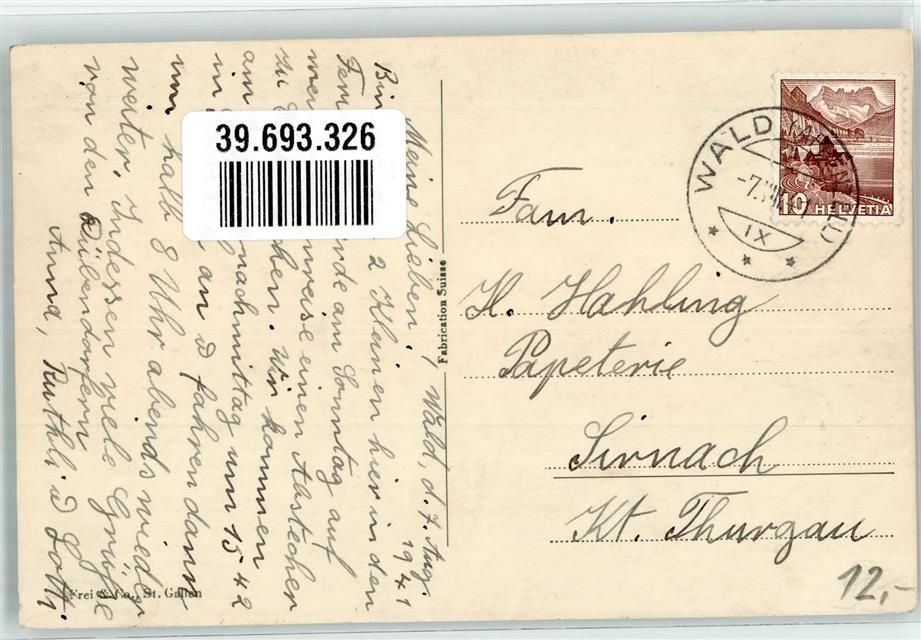 39.693.326
Meine Lieben! Wald, d. 7. Aug. 1941
Bin 2 Kleinen hier in den
Fem nde am Sonntag auf
mei reise einen Abstecher
zu chen. Wir kommen
am nachmittag um 15 42
in an & fahren dann
um halb 8 Uhr abends wieder
weiter. Indessen viele Grüsse
von den Dübendorfern
Anna, Ruthli & Lotti
Fabrication Suisse
Frei & Co., St. Gallen
WALD
-7.
IX
10 HELVETIA
Fam.
K. Hahling
Papeterie
Sirnach
Kt. Thurgau
12,-